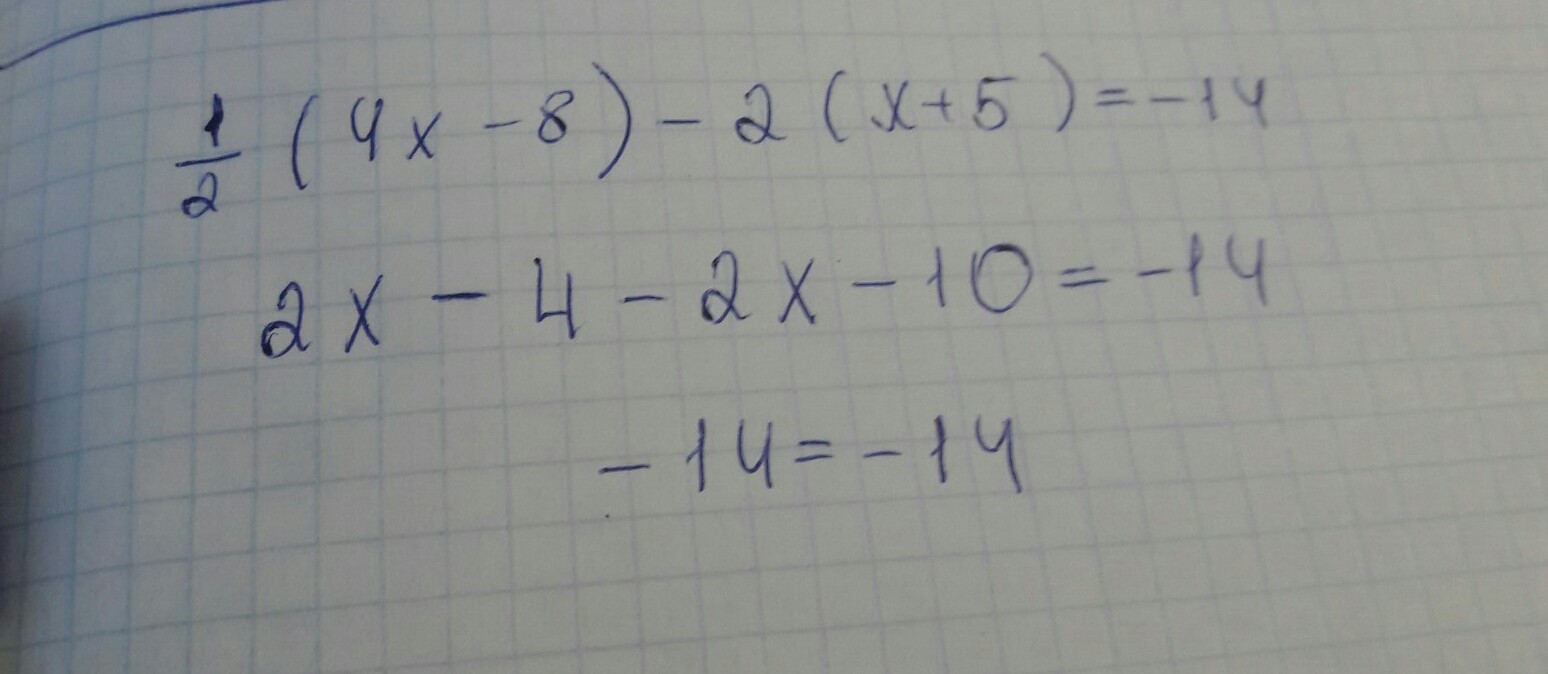 1/2 (4x - 8) - 2 (x+5) = -14
2x - 4 - 2x - 10 = -14
-14 = -14